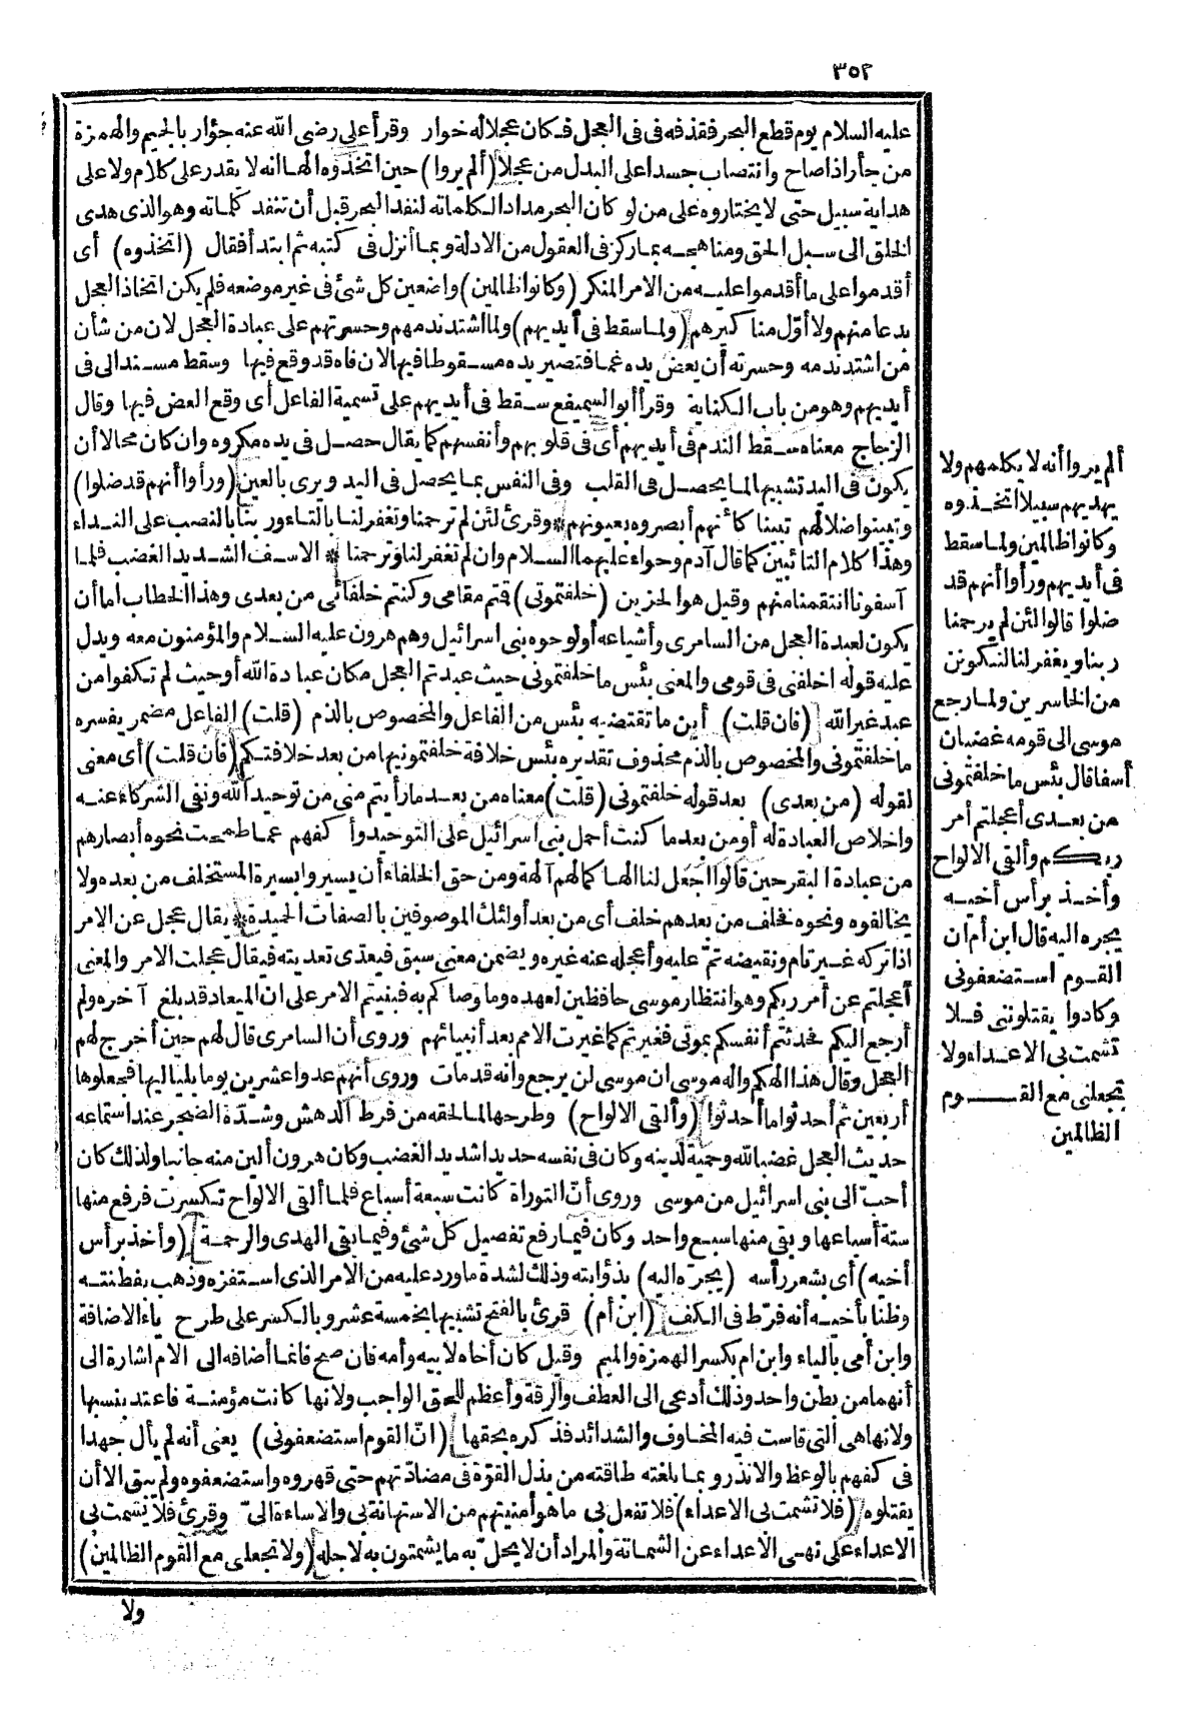 ٣٥٢
عليه السلام يوم قطع البحر فقذفه فى فى العجل فكان عجلا له خوار وقرأ على رضى الله عنه جؤار بالجيم والهمزة
من جأر اذا صاح وانتصاب جسدا على البدل من عجلا (ألم يروا) حين اتخذوه الها انه لا يقدر على كلام ولا على
هداية سبيل حتى لا يختاروه على من لو كان البحر مدادا لكلماته لنفد البحر قبل أن تنفد كلماته وهو الذى هدى
الخلق الى سبل الحق ومناهجه بما ركز فى العقول من الادلة وبما أنزل فى كتبه ثم ابتدأ فقال (اتخذوه) أى
أقدموا على ما أقدموا عليه من الامر المنكر (وكانوا ظالمين) واضعين كل شئ فى غير موضعه فلم يكن اتخاذ العجل
بدعا منهم ولا أوّل مناكيرهم (ولما سقط فى أيديهم) ولما اشتد ندمهم وحسرتهم على عبادة العجل لان من شأن
من اشتد ندمه وحسرته أن يعض يده غما فتصير يده مسقوطا فيها لان فاه قد وقع فيها وسقط مسند الى فى
أيديهم وهو من باب الكناية وقرأ أبو السميفع سقط فى أيديهم على تسمية الفاعل أى وقع العض فيها وقال
الزجاج معناه سقط الندم فى أيديهم أى فى قلوبهم وأنفسهم كما يقال حصل فى يده مكروه وان كان محالا أن
يكون فى اليد تشبيها لما يحصل فى القلب وفى النفس بما يحصل فى اليد ويرى بالعين (ورأوا أنهم قد ضلوا)
وتبينوا ضلالهم تبينا كأنهم أبصروه بعيونهم * وقرئ لئن لم ترحمنا وتغفر لنا بالتاء وربنا بالنصب على النداء
وهذا كلام التائبين كما قال آدم وحواء عليهما السلام وان لم تغفر لنا وترحمنا * الاسف الشديد الغضب فلما
آسفونا انتقمنا منهم وقيل هو الحزين (خلفتمونى) قتم مقامى وكنتم خلفائى من بعدى وهذا الخطاب اما أن
يكون لعبدة العجل من السامرى وأشياعه أو لوجوه بنى اسرائيل وهم هرون عليه السلام والمؤمنون معه ويدل
عليه قوله اخلفنى فى قومى والمعنى بئس ما خلفتمونى حيث عبدتم العجل مكان عبادة الله أو حيث لم تكفوا من
عبد غير الله (فان قلت) أين ما تقتضيه بئس من الفاعل والمخصوص بالذم (قلت) الفاعل مضمر يفسره
ما خلفتمونى والمخصوص بالذم محذوف تقديره بئس خلافة خلفتمونيها من بعد خلافتكم (فان قلت) أى معنى
لقوله (من بعدى) بعد قوله خلفتمونى (قلت) معناه من بعد ما رأيتم منى من توحيد الله ونفى الشركاء عنه
واخلاص العبادة له أو من بعد ما كنت أحمل بنى اسرائيل على التوحيد وأكفهم عما طمحت نحوه أبصارهم
من عبادة البقر حين قالوا اجعل لنا الها كما لهم آلهة ومن حق الخلفاء أن يسيروا بسيرة المستخلف من بعده ولا
يخالفوه ونحوه فخلف من بعدهم خلف أى من بعد أولئك الموصوفين بالصفات الحميدة * يقال عجل عن الامر
اذا تركه غير تام ونقيضه تمّ عليه وأعجله عنه غيره ويضمن معنى سبق فيعدى تعديته فيقال عجلت الامر والمعنى
أعجلتم عن أمر ربكم وهو انتظار موسى حافظين لعهده وما وصاكم به فبنيتم الامر على ان الميعاد قد بلغ آخره ولم
أرجع اليكم فحدثتم أنفسكم بموتى فغيرتم كما غيرت الامم بعد أنبيائهم وروى أن السامرى قال لهم حين أخرج لهم
العجل وقال هذا الهكم واله موسى ان موسى لن يرجع وانه قد مات وروى أنهم عدوا عشرين يوما بلياليها فجعلوها
أربعين ثم أحدثوا ما أحدثوا (وألقى الالواح) وطرحها لما لحقه من فرط الدهش وشدّة الضجر عند استماعه
حديث العجل غضبا لله وحمية لدينه وكان فى نفسه حديدا شديد الغضب وكان هرون ألين منه جانبا ولذلك كان
أحبّ الى بنى اسرائيل من موسى وروى أنّ التوراة كانت سبعة أسباع فلما ألقى الالواح تكسرت فرفع منها
ستة أسباعها وبقى منها سبع واحد وكان فيما رفع تفصيل كل شئ وفيما بقى الهدى والرحمة (وأخذ برأس
أخيه) أى بشعر رأسه (يجرّه اليه) بذؤابته وذلك لشدة ما ورد عليه من الامر الذى استفزه وذهب بفطنته
وظنّا بأخيه أنه فرّط فى الكف (ابن أم) قرئ بالفتح تشبيها بخمسة عشر وبالكسر على طرح ياء الاضافة
وابن أمى بالياء وابن ام بكسر الهمزة والميم وقيل كان أخاه لابيه وأمه فان صح فانما أضافه الى الام اشارة الى
أنهما من بطن واحد وذلك أدعى الى العطف والرقة وأعظم للحق الواجب ولانها كانت مؤمنة فاعتد بنسبها
ولانها هى التى قاست فيه المخاوف والشدائد فذكره بحقها (انّ القوم استضعفونى) يعنى أنه لم يأل جهدا
فى كفهم بالوعظ والانذار وبما بلغته طاقته من بذل القوّة فى مضادّتهم حتى قهروه واستضعفوه ولم يبق الا أن
يقتلوه (فلا تشمت بى الاعداء) فلا تفعل بى ما هو أمنيتهم من الاستهانة بى والاساءة الىّ وقرئ فلا يشمت بى
الاعداء على نهى الاعداء عن الشماتة والمراد أن لا يحلّ به ما يشمتون به لاجله (ولا تجعلنى مع القوم الظالمين)
ولا
ألم يروا أنه لا يكلمهم ولا
يهديهم سبيلا اتخذوه
وكانوا ظالمين ولما سقط
فى أيديهم ورأوا أنهم قد
ضلوا قالوا لئن لم يرحمنا
ربنا ويغفر لنا لنكونن
من الخاسرين ولما رجع
موسى الى قومه غضبان
أسفا قال بئس ما خلفتمونى
من بعدى أعجلتم أمر
ربكم وألقى الالواح
وأخذ برأس أخيه
يجره اليه قال ابن أم ان
القوم استضعفونى
وكادوا يقتلوننى فلا
تشمت بى الاعداء ولا
تجعلنى مع القوم
الظالمين